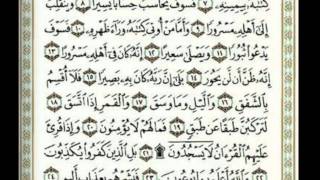 كِتَٰبَهُۥ بِيَمِينِهِۦ ٧ فَسَوْفَ يُحَاسَبُ حِسَابًا يَسِيرًا ٨ وَيَنقَلِبُ
إِلَىٰٓ أَهْلِهِۦ مَسْرُورًا ٩ وَأَمَّا مَنْ أُوتِىَ كِتَٰبَهُۥ وَرَآءَ ظَهْرِهِۦ ١٠ فَسَوْفَ
يَدْعُوا۟ ثُبُورًا ١١ وَيَصْلَىٰ سَعِيرًا ١٢ إِنَّهُۥ كَانَ فِىٓ أَهْلِهِۦ مَسْرُورًا ١٣
إِنَّهُۥ ظَنَّ أَن لَّن يَحُورَ ١٤ بَلَىٰٓ إِنَّ رَبَّهُۥ كَانَ بِهِۦ بَصِيرًا ١٥ فَلَآ أُقْسِمُ
بِٱلشَّفَقِ ١٦ وَٱلَّيْلِ وَمَا وَسَقَ ١٧ وَٱلْقَمَرِ إِذَا ٱتَّسَقَ ١٨
لَتَرْكَبُنَّ طَبَقًا عَن طَبَقٍ ١٩ فَمَا لَهُمْ لَا يُؤْمِنُونَ ٢٠ وَإِذَا قُرِئَ
عَلَيْهِمُ ٱلْقُرْءَانُ لَا يَسْجُدُونَ ۩ ٢١ بَلِ ٱلَّذِينَ كَفَرُوا۟ يُكَذِّبُونَ
٢٢ وَٱللَّهُ أَعْلَمُ بِمَا يُوعُونَ ٢٣ فَبَشِّرْهُم بِعَذَابٍ أَلِيمٍ